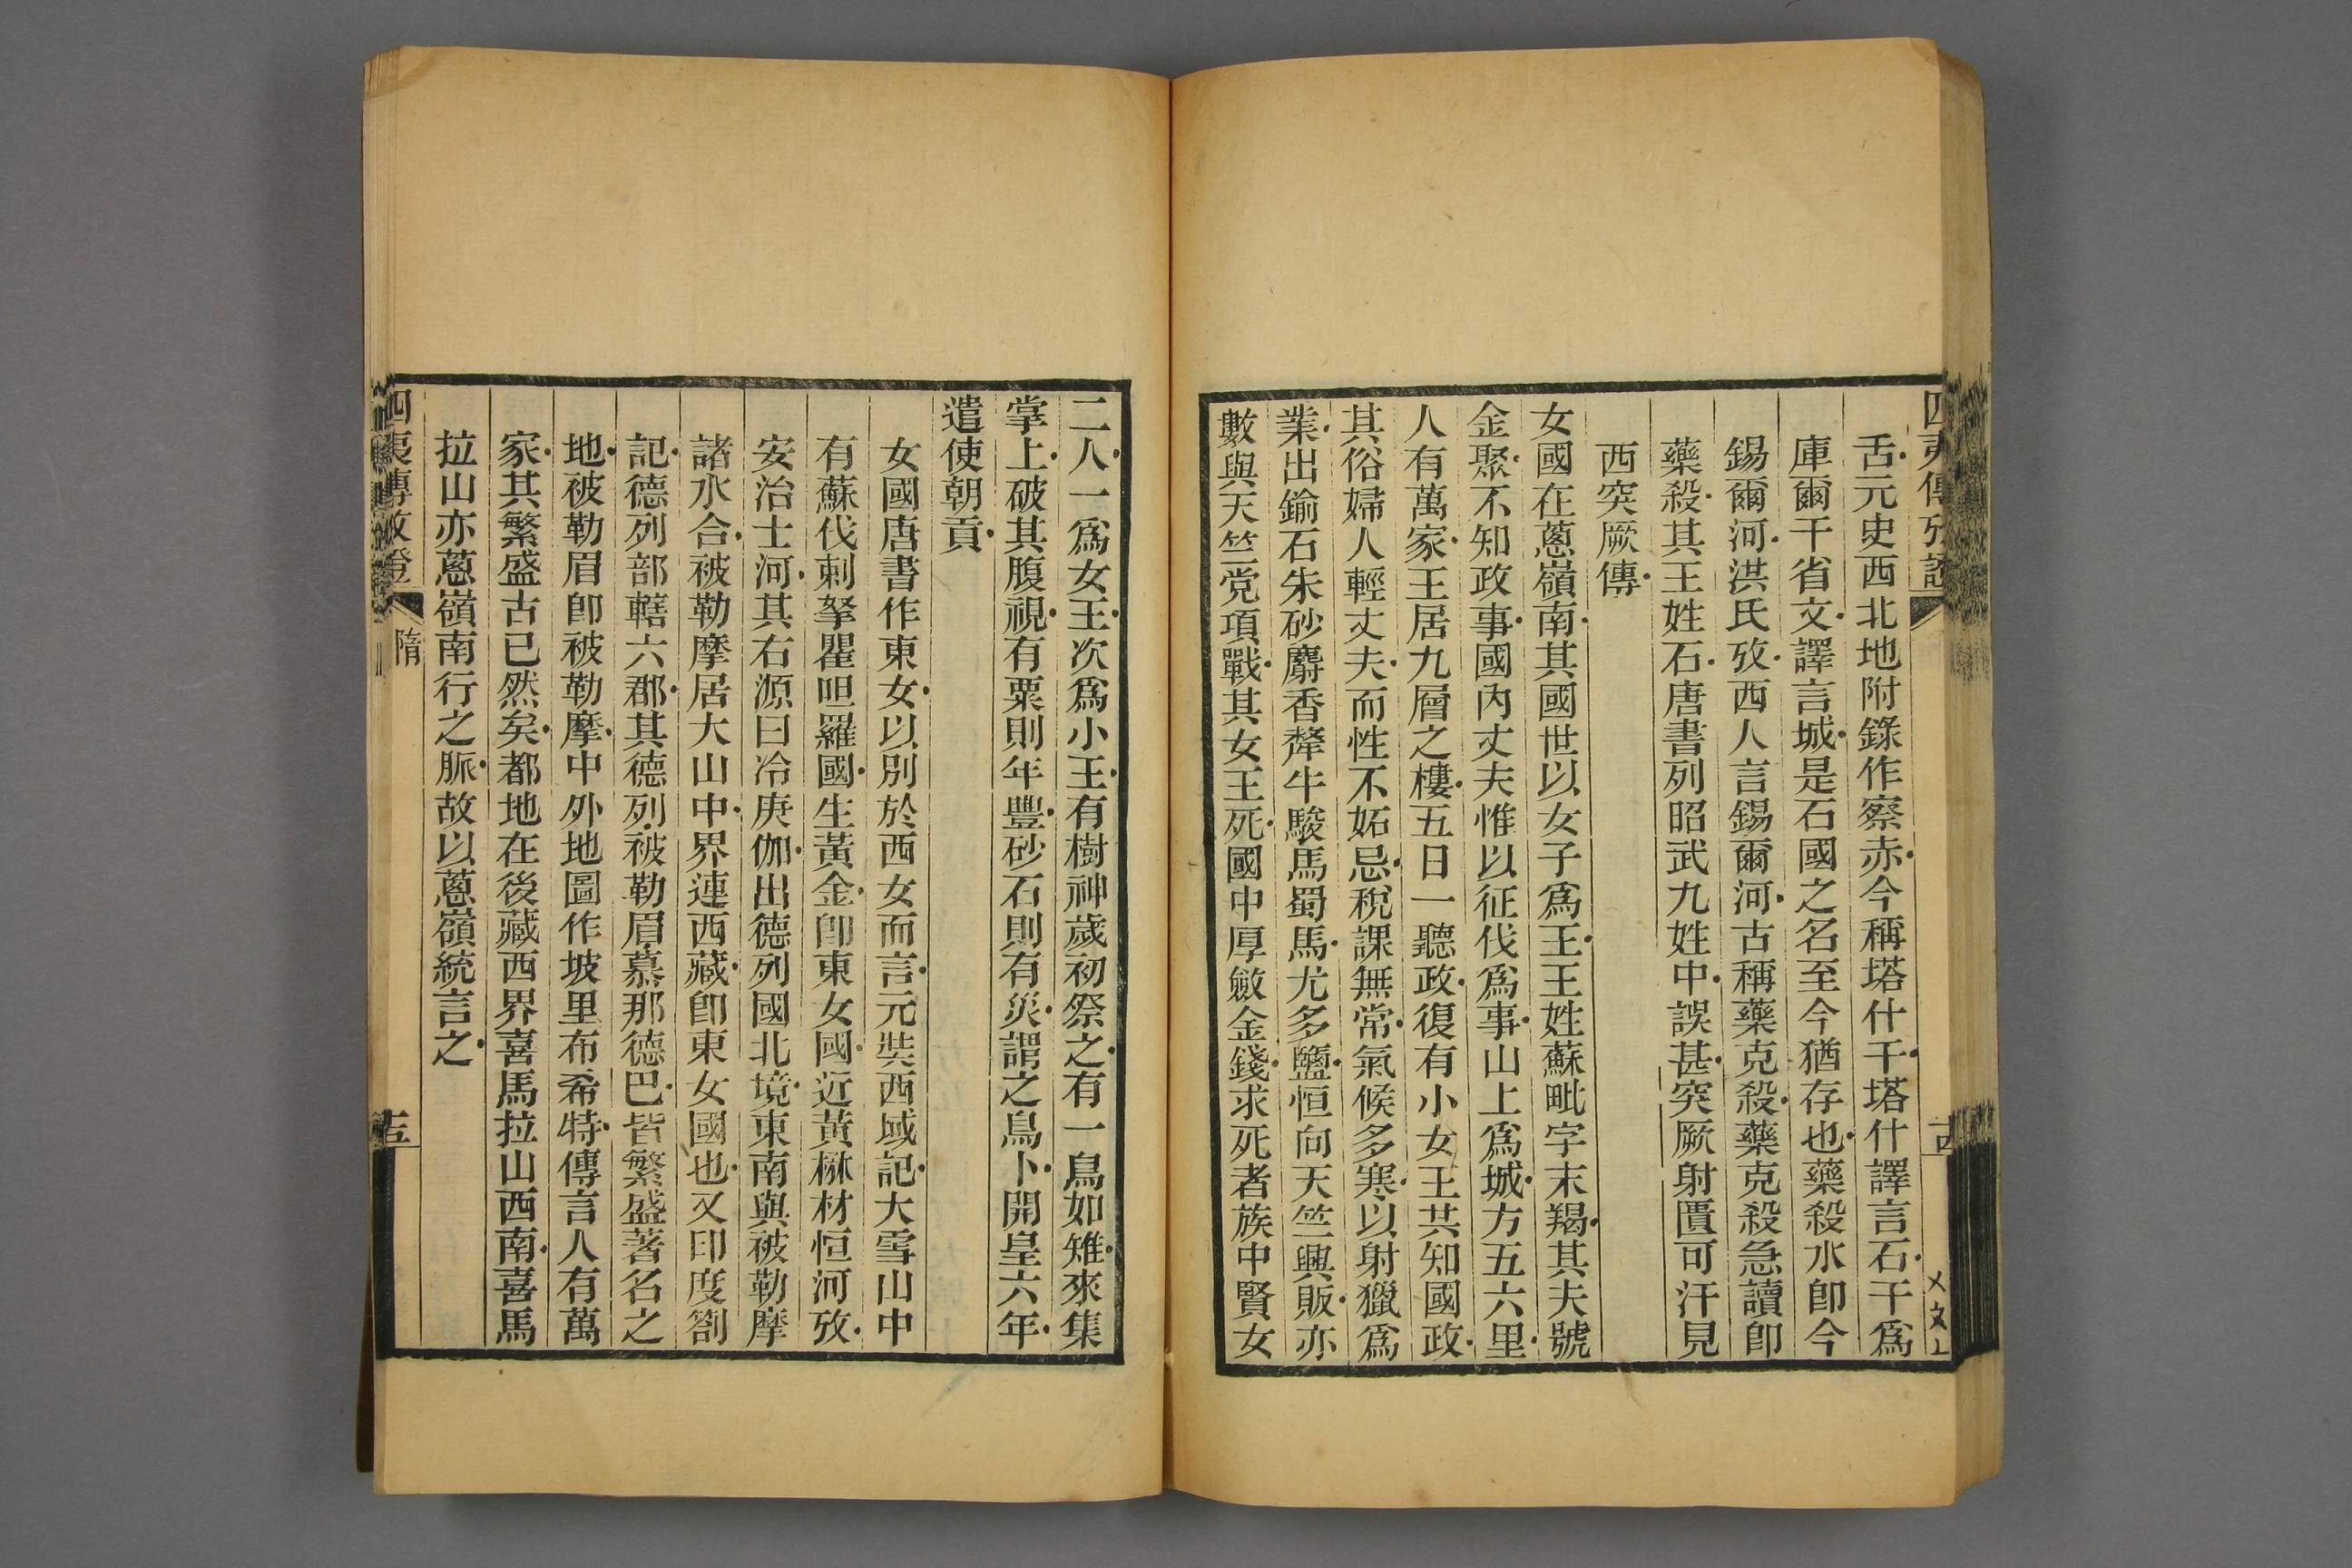 舌元史西北地附錄作察赤今稱塔什干塔什譯言石干爲
庫爾干省文譯言城是石國之名至今猶存也藥殺水卽今
錫爾河洪氏攷西人言錫爾河古稱藥克殺藥克殺急讀卽
藥殺其王姓石唐書列昭武九姓中誤甚突厥射匱可汗見
西突厥傳
女國在蔥嶺南其國世以女子爲王王姓蘇毗字末羯其夫號
金聚不知政事國內丈夫惟以征伐爲事山上爲城方五六里
人有萬家王居九層之樓五日一聽政復有小女王共知國政
其俗婦人輕丈夫而性不妬忌稅課無常氣候多寒以射獵爲
業出鍮石朱砂麝香犛牛駿馬蜀馬尤多鹽恒向天竺興販亦
數與天竺党項戰其女王死國中厚斂金錢求死者族中賢女
二人一爲女王次爲小王有樹神歲初祭之有一鳥如雉來集
掌上破其腹視有粟則年豐砂石則有災謂之鳥卜開皇六年
遣使朝貢
女國唐書作東女以別於西女而言元奘西域記大雪山中
有蘇伐剌拏瞿呾羅國生黃金卽東女國近黃楙材恒河攷
安治士河其右源曰冷庚伽出德列國北境東南與被勒摩
諸水合被勒摩居大山中界連西藏卽東女國也又印度劄
記德列部轄六郡其德列被勒眉慕那德巴皆繁盛著名之
地被勒眉卽被勒摩中外地圖作坡里布希特傳言人有萬
家其繁盛古已然矣都地在後藏西界喜馬拉山西南喜馬
拉山亦蔥嶺南行之脈故以蔥嶺統言之
四夷傳攷證
隋